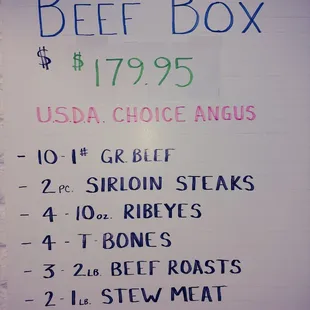 BEEF BOX
$ $179.95
U.S.D.A. CHOICE ANGUS
- 10-1# GR. BEEF
- 2 PC. SIRLOIN STEAKS
- 4 - 10 OZ. RIBEYES
- 4 - T-BONES
- 3 - 2 LB. BEEF ROASTS
- 2 - 1 LB. STEW MEAT